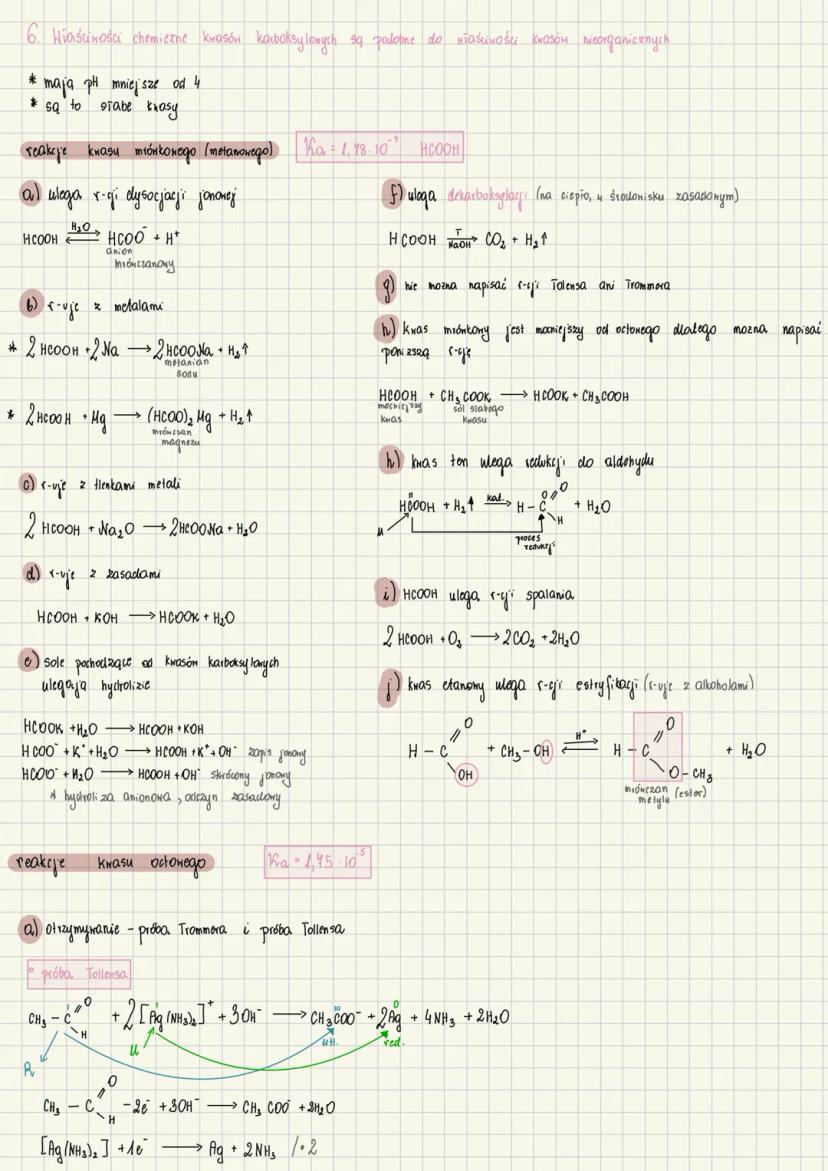 6. Właściwości chemiczne kwasów karboksylowych są podobne do właściwości kwasów nieorganicznych
* mają pH mniejsze od 4
* są to słabe kwasy
reakcje kwasu mrówkowego (metanowego)
Ka = 1,78·10⁻⁴ HCOOH
a) ulega r-cji dysocjacji jonowej
HCOOH ⇌ HCOO⁻ + H⁺
H₂O
anion
mrówczanowy
b) r-uje z metalami
* 2 HCOOH + 2 Na → 2 HCOONa + H₂↑
metanian
sodu
* 2 HCOOH + Mg → (HCOO)₂ Mg + H₂↑
mrówczan
magnezu
c) r-uje z tlenkami metali
2 HCOOH + Na₂O → 2HCOONa + H₂O
d) r-uje z zasadami
HCOOH + KOH → HCOOK + H₂O
e) sole pochodzące od kwasów karboksylowych
ulegają hydrolizie
HCOOK + H₂O → HCOOH + KOH
HCOO⁻ + K⁺ + H₂O → HCOOH + K⁺ + OH⁻ zapis jonowy
HCOO⁻ + H₂O → HCOOH + OH⁻ skrócony jonowy
* hydroliza anionowa, odczyn zasadowy
f) ulega dekarboksylacji (na ciepło, w środowisku zasadowym)
HCOOH → CO₂ + H₂↑
T
NaOH
g) nie można napisać r-cji Tolensa ani Trommera
h) kwas mrówkowy jest mocniejszy od octowego dlatego można napisać
poniższą r-cję
HCOOH + CH₃COOK → HCOOK + CH₃COOH
mocniejszy
kwas
sól słabego
kwasu
h) kwas ten ulega redukcji do aldehydu
HCOOH + H₂↑ → H – C + H₂O
II
kat.
0
O
H
u
proces
redukcji
i) HCOOH ulega r-cji spalania
2 HCOOH + O₂ → 2CO₂ + 2H₂O
j) kwas etanowy ulega r-cji estryfikacji (r-uje z alkoholami)
O
H – C
OH
+ CH₃ – OH ⇌
H⁺
O
H – C
O – CH₃
+ H₂O
mrówczan
metylu (ester)
reakcje kwasu octowego
Ka = 1,75·10⁻⁵
a) Otrzymywanie – próba Trommera i próba Tollensa
° próba Tollensa
CH₃ – C + 2 [Ag(NH₃)₂]⁺ + 3OH⁻ → CH₃COO⁻ + 2Ag + 4NH₃ + 2H₂O
I
O
H
I
III
0
R
U
utl.
red.
O
CH₃ – C – 2e⁻ + 3OH⁻ → CH₃ COO⁻ + 2H₂O
H
[Ag(NH₃)₂] + 1e⁻ → Ag + 2NH₃ /·2